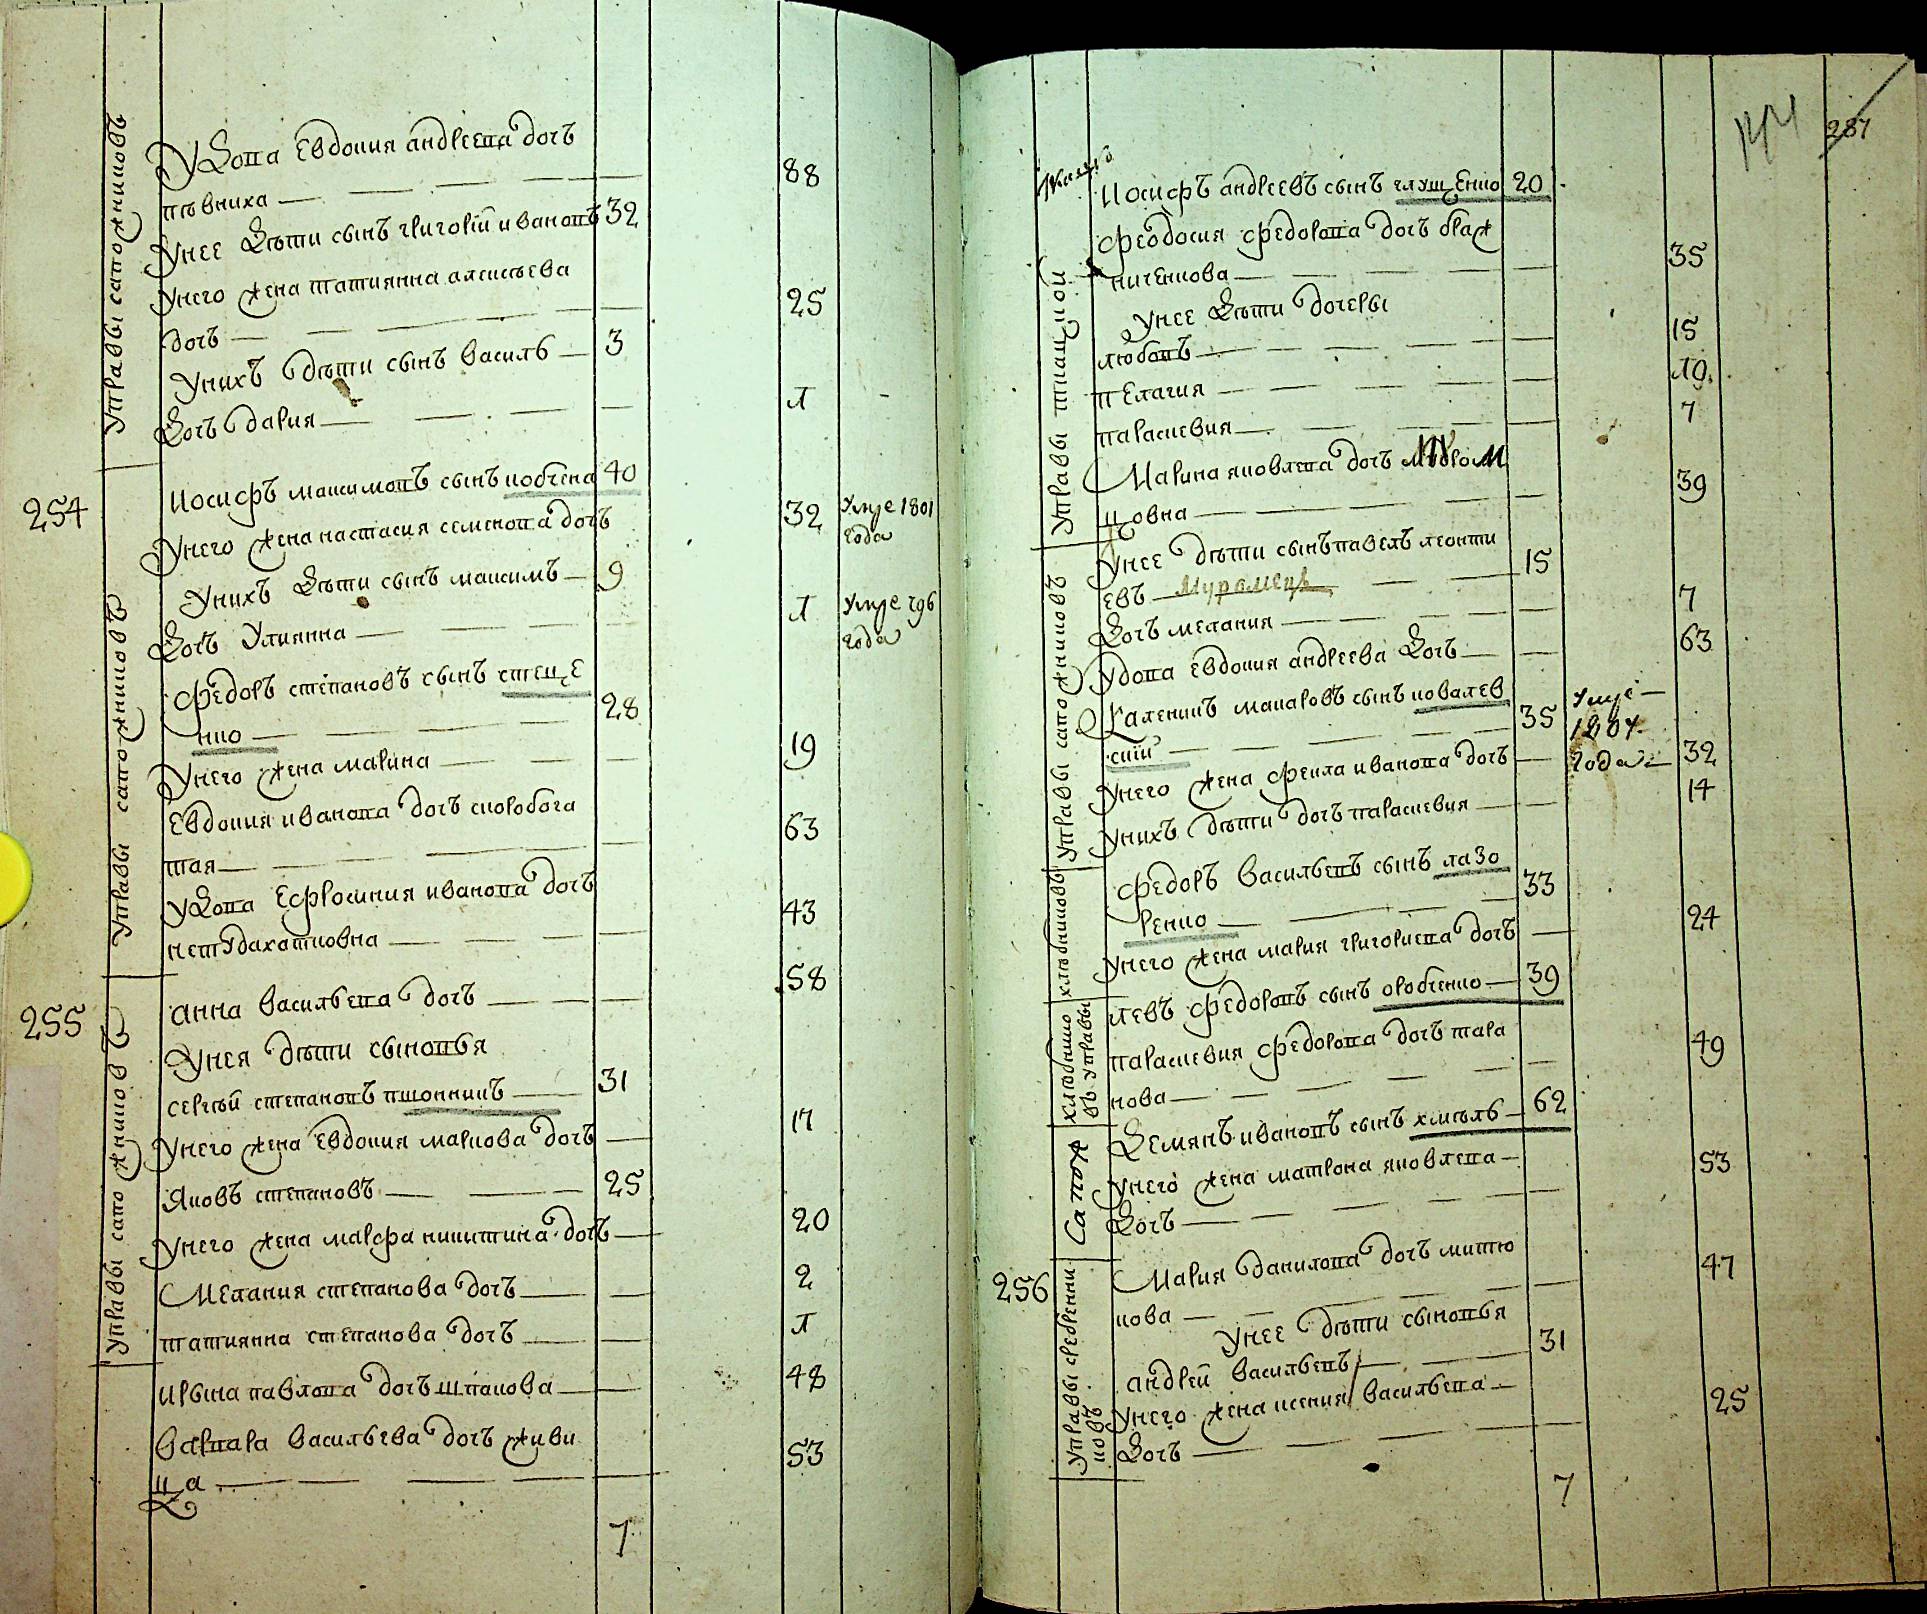 Управы сапожниковъ
Удова Евдокия андреева дочь
пѣвниха 88
унее дѣти сынъ григорий ивановъ 32
унего жена татиянна алексѣева
дочь 25
унихъ дѣти сынъ василь 3
дочь дария 1
254
Управы сапожниковъ
Иосифъ максимовъ сынъ кобчена 40
унего жена настасия семенова дочь 32 Умре 1801
года
унихъ дѣти сынъ максимъ 9
дочь улиянна 1 Умре 796
года
федоръ степановъ сынъ стеще
нко 28
унего жена марина 19
Евдокия иванова дочь скоробога
тая 63
удова Ефросиния иванова дочь
нетудахатковна 43
255
Управы сапожниковъ
анна васильева дочь 58
унея дѣти сыновья
сергѣй степановъ пшонникъ 31
унего жена Евдокия маркова дочь 17
яковъ степановъ 25
унего жена марфа никитина дочь 20
мелания степанова дочь 2
татиянна степанова дочь 1
ирына павлова дочь шпакова 48
варвара васильева дочь живи
ца 53
7
287
Управы ткацкой
Иосифъ андреевъ сынъ глущенко 20
феодосия федорова дочь браж
ниченкова 35
унее дѣти дочеры
любовъ 15
пелагия 10
параскевия 7
Марина яковлева дочь
цовна 39
Управы сапожниковъ
унее дѣти сынъ павелъ леонти
евъ Муромецъ 15
дочь мелания 7
удова евдокия андреева дочь 63
каленикъ макаровъ сынъ ковалев
ский 35 Умре
1804
года
унего жена фекла иванова дочь 32
унихъ дѣти дочь параскевия 14
хлѣбниковъ
федоръ васильевъ сынъ лазо
ренко 33
унего жена мария григориева дочь 24
хлѣбнико
въ управы
левъ федоровъ сынъ оробченко 39
параскевия федорова дочь тара
нова 49
Сапож
демянъ ивановъ сынъ хмѣль 62
унего жена матрона яковлева
дочь 53
256
Управы сребенни
ковъ
Мария данилова дочь митю
кова 47
унее дѣти сыновья
андрей васильевъ 31
унего жена ксения васильева
дочь 25
7